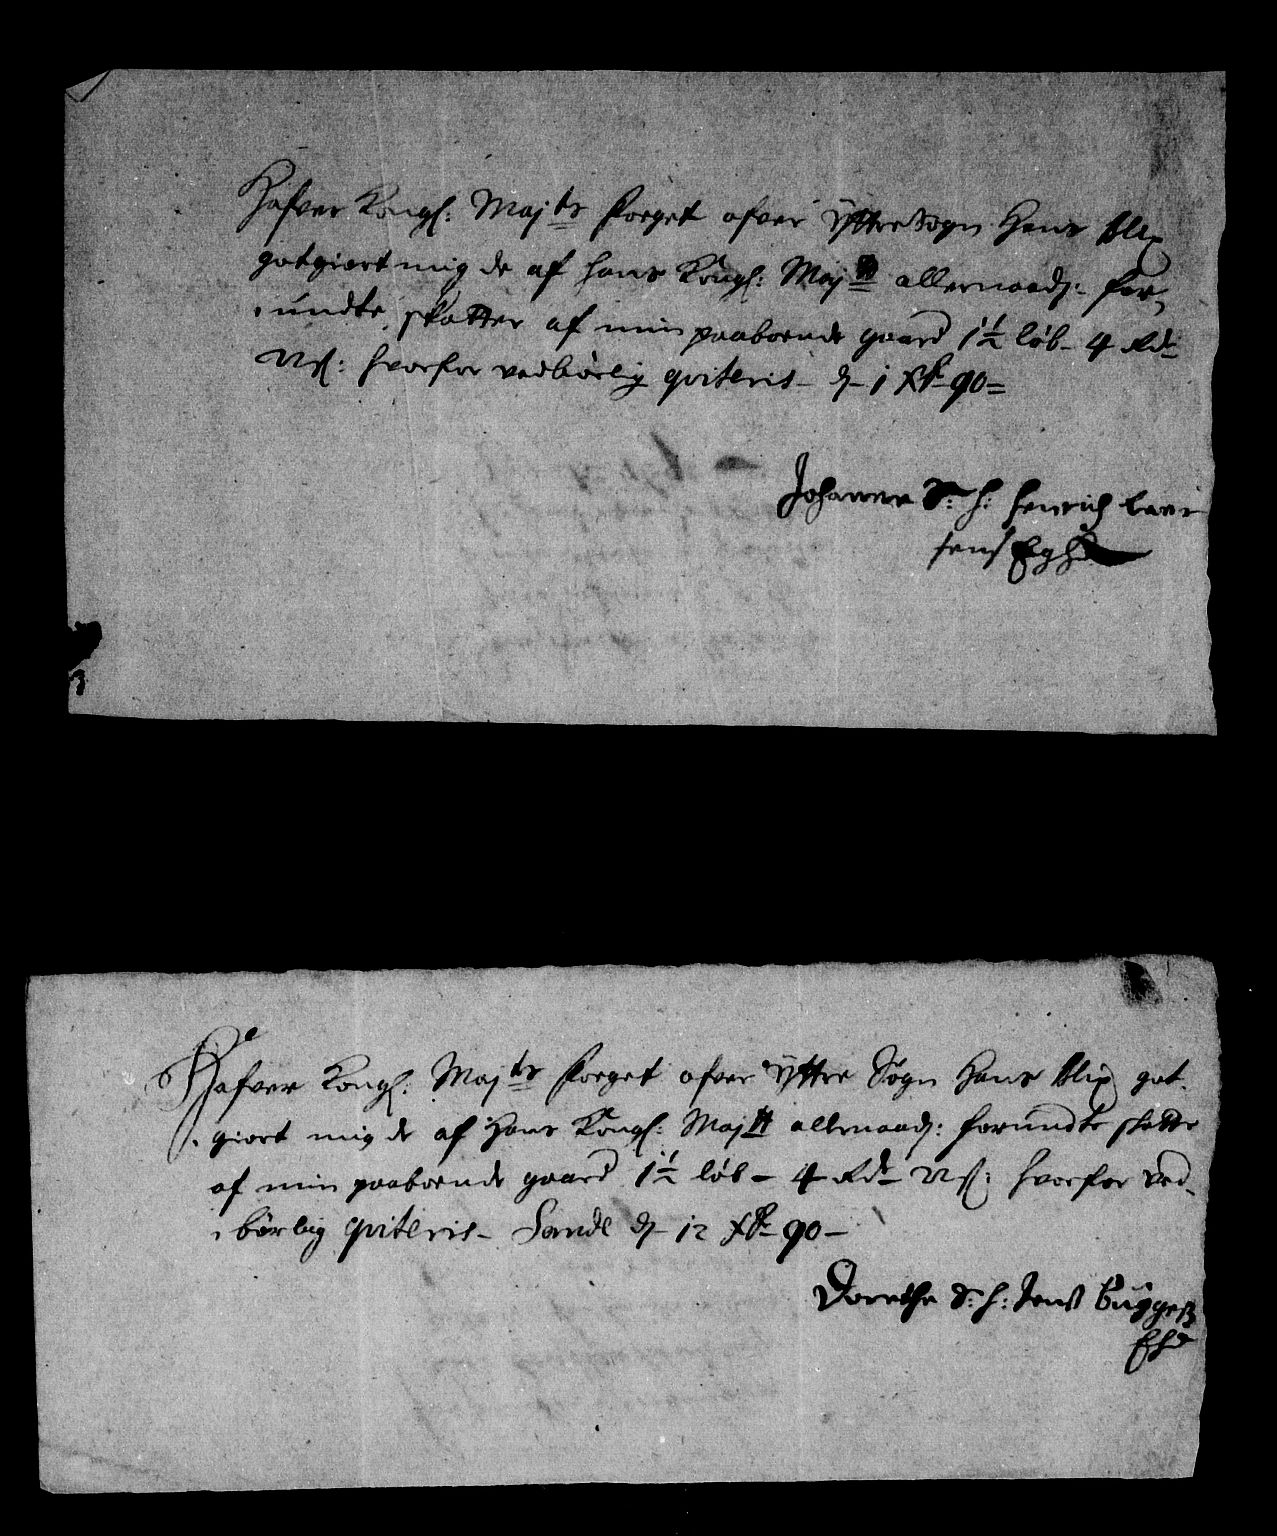 Hafver Kongl: Maj:ts foeget ofver Yttre Sogn Hans Blix
gotgiort mig de af hans Kongl: Maj:tt allernaads: for-
undte skatter af min paaboende gaard 1½ løb - 4 Rdr
hvorfor vedbørlig qviteris - d 1 Xbr 90 =
Johanne S: H: Henrich Laur
sens Eghd
Hafver Kongl: Maj:ts foeget ofver Yttre Sogn Hans Blix got-
giort mig de af Hans Kongl: Maj:tt allernaads: forundte skatte
af min paaboende gaard 1½ løb - 4 Rdr hvorfor ved-
børlig qviteris - Sande d 12 Xbr 90 -
Dorethe S: H: Jens Buggeß
Ehd